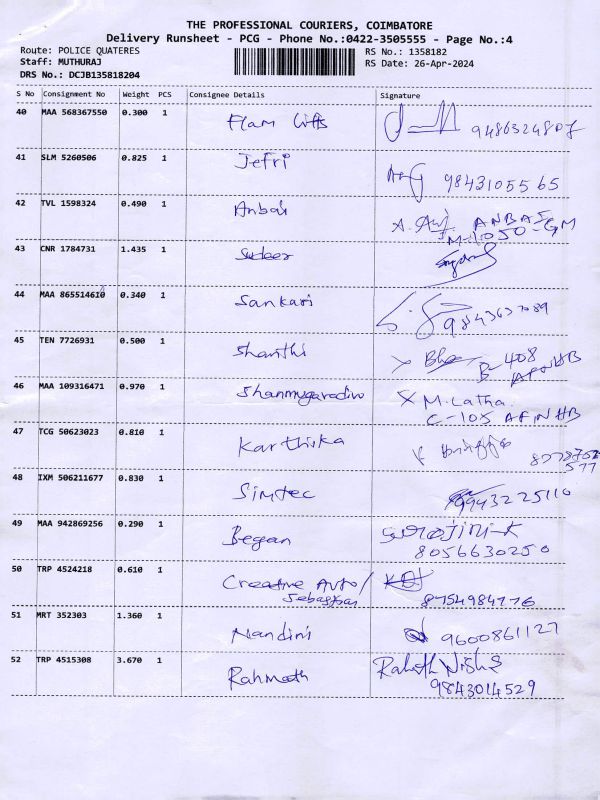 THE PROFESSIONAL COURIERS, COIMBATORE
Delivery Runsheet - PCG - Phone No.:0422-3505555 - Page No.:4
Route: POLICE QUATERES RS No.: 1358182
Staff: MUTHURAJ RS Date: 26-Apr-2024
DRS No.: DCJB135818204
S No Consignment No Weight PCS Consignee Details Signature
40 MAA 568367550 0.300 1 Flam Gifts 9486324807
41 SLM 5260506 0.825 1 Jefri 9843105565
42 TVL 1598324 0.490 1 Anbai ANBAI
M-1050-GM
43 CNR 1784731 1.435 1
44 MAA 865514610 0.340 1 Sankari 9843637089
45 TEN 7726931 0.500 1 Shanthi B-408
AFNHB
46 MAA 109316471 0.970 1 Shanmugavadivu X M. Latha.
C-105 AFNHB
47 TCG 50623023 0.810 1 Karthika
577
48 IXM 506211677 0.830 1 Simtec 9943225110
49 MAA 942869256 0.290 1 Began Surojini-K
8056630250
50 TRP 4524218 0.610 1 Creative Auto/
Sebastian 8754984776
51 MRT 352303 1.360 1 Nandini 9600861127
52 TRP 4515308 3.670 1 Rahmath
9843014529